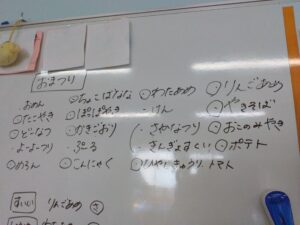 おまつり
・おめん ・ちょこばなな ・わたあめ ・りんごあめ
・たこやき ・ぽっぽやき ・けん ・やきそば
・どーなつ ・かきごおり ・さかなつり ・おこのみやき
・よーよーつり ・ぷーる ・きんぎょすくい ・ポテト
・めろん ・こんにゃく ・ひやしきゅうり、トマト
すいい りんごあめ